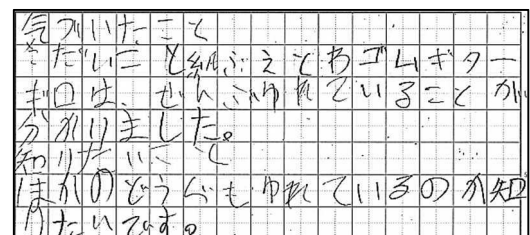 気づいたこと
だいこと紙ぶえとわゴムギター
ギロは、ぜんぶゆれていることが
分かりました。
知りたいこと
ほかのどうぐもゆれているのか知
りたいです。